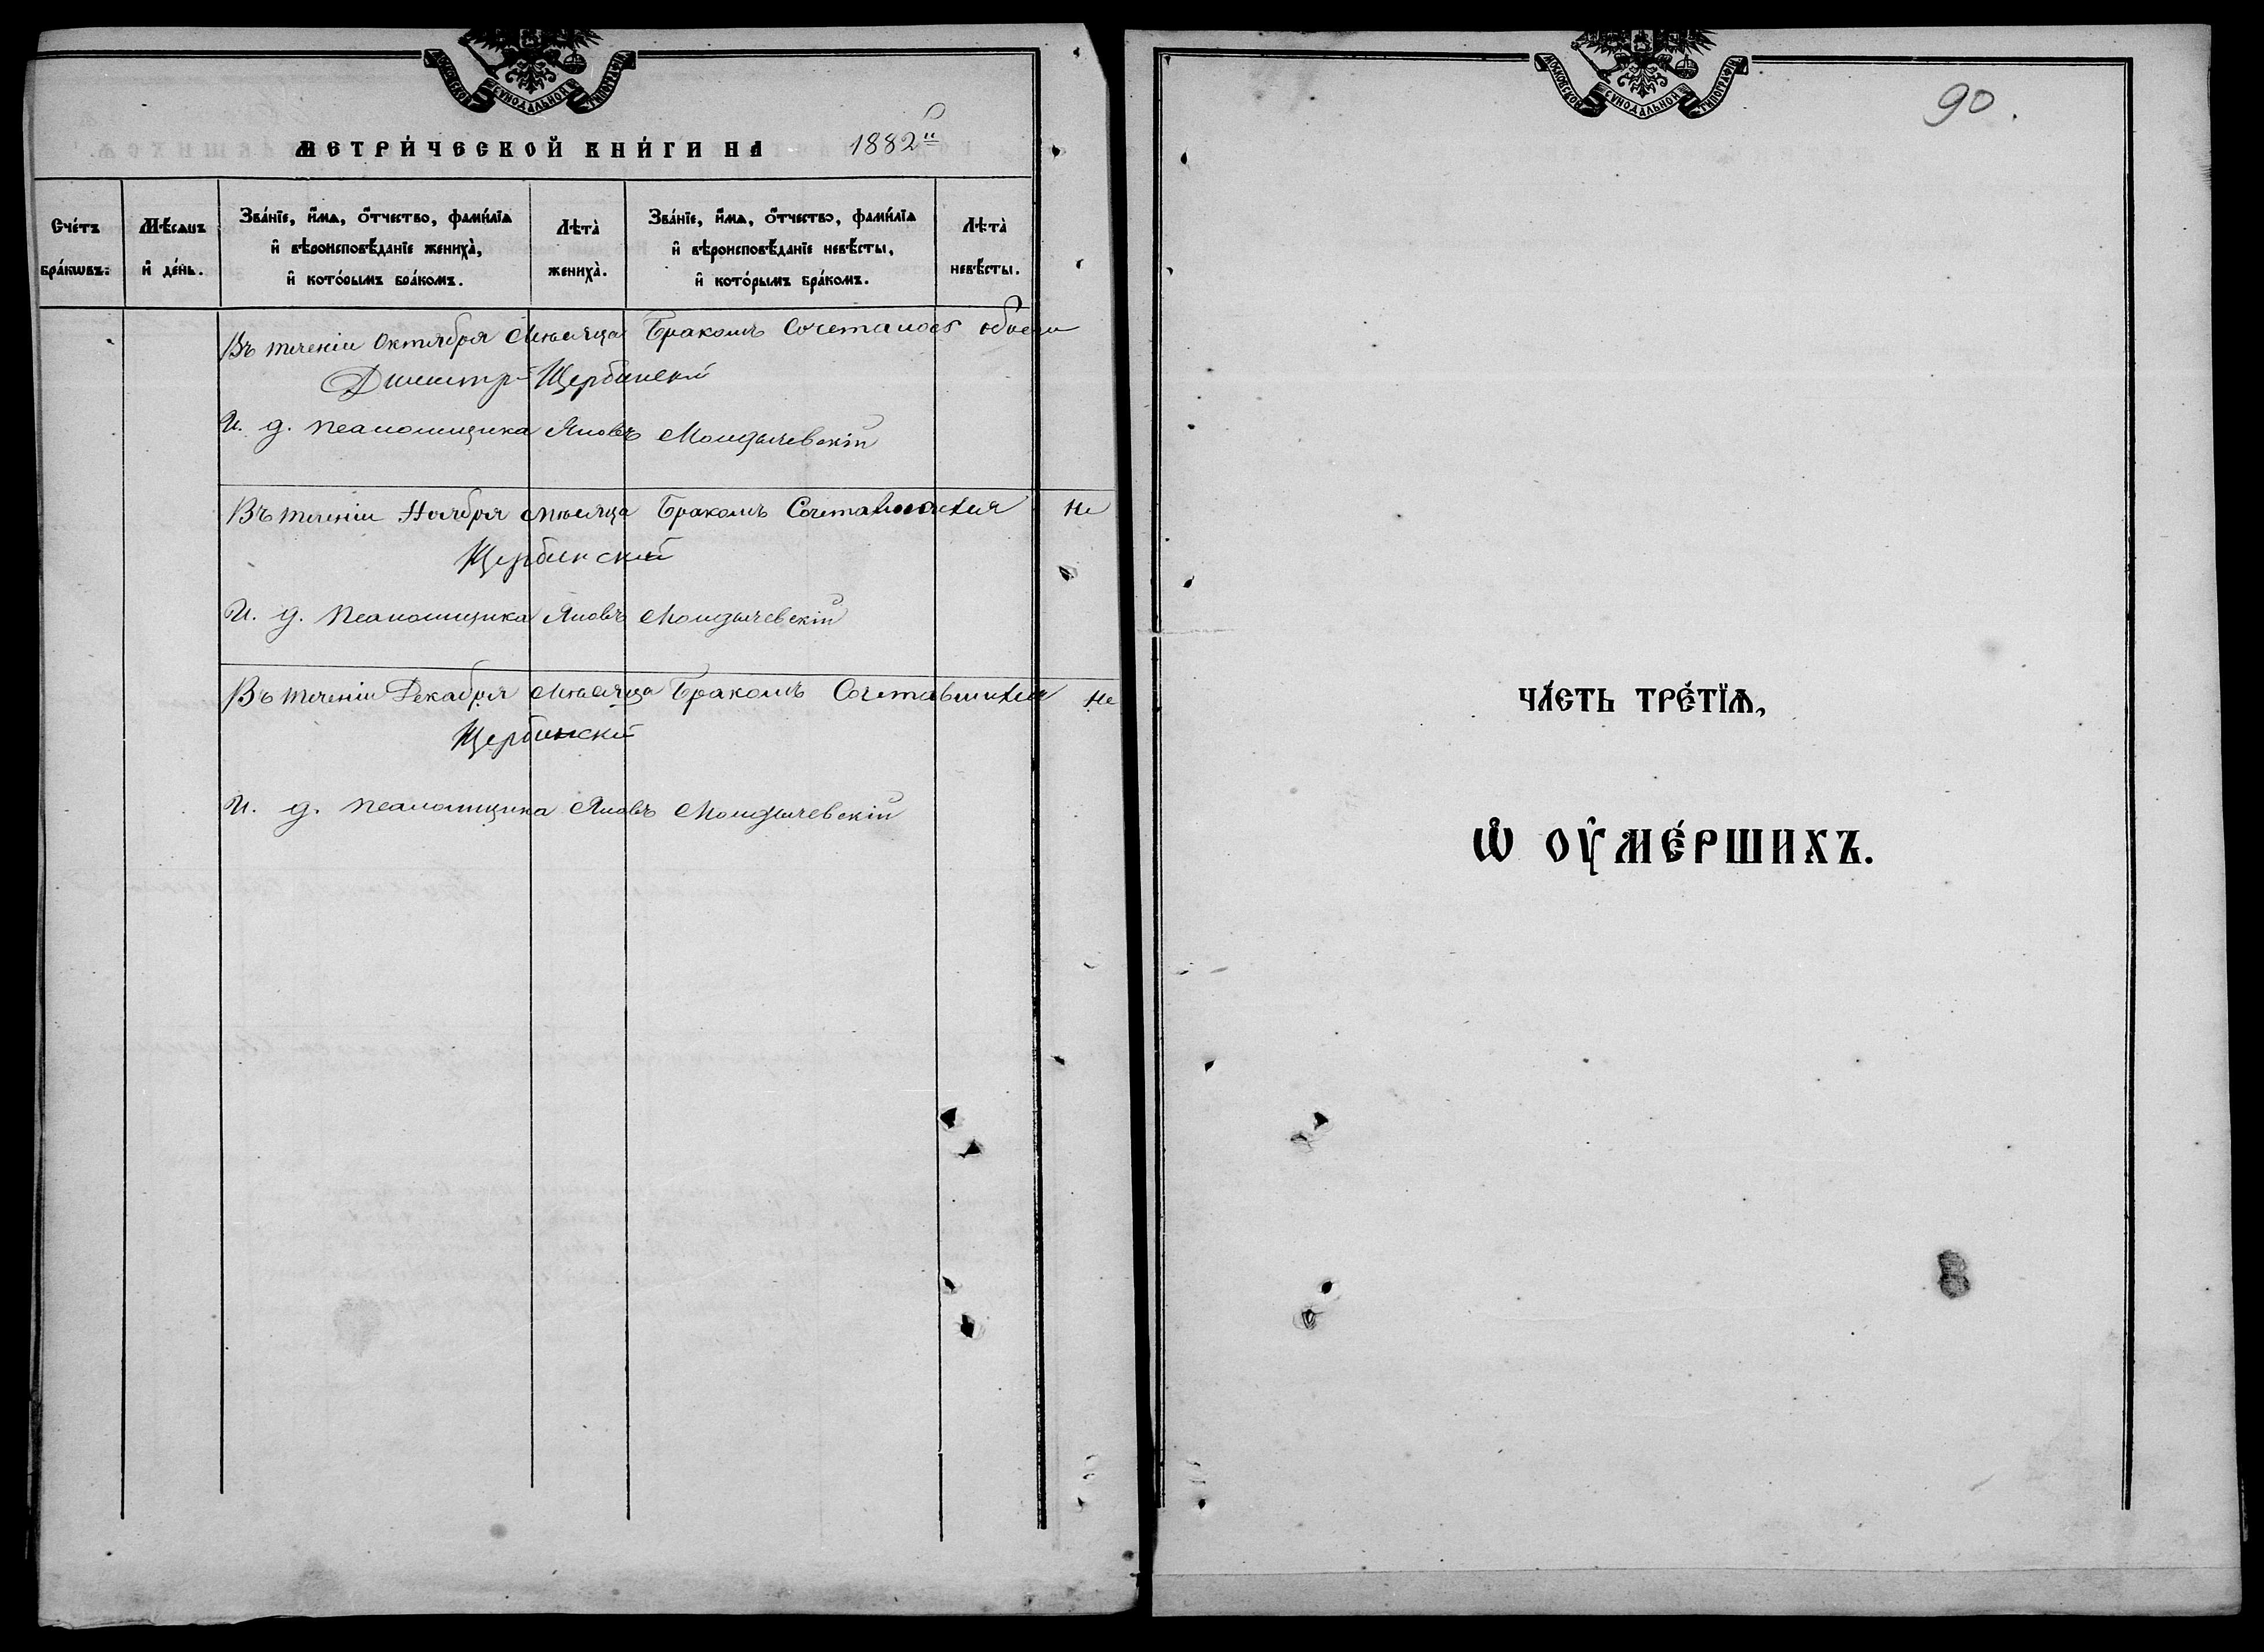 МОСКОВСКОЙ СѴНОДАЛЬНОЙ ТИПОГРАФІИ
МЕТРИ́ЧЕСКОЙ КНИ́ГИ НА 1882й
Сче́тъ бра́кѡвъ:
Мѣ́сѧцъ и҆ де́нь.
Зва́нїе, и҆́мѧ, ѻ҆́тчество, фами́лїѧ
и҆ вѣроисповѣ́данїе женихà,
и҆ кото́рымъ бра́комъ.
Лѣтà
женихà.
Зва́нїе, и҆́мѧ, ѻ҆́тчество, фами́лїѧ
и҆ вѣроисповѣ́данїе невѣ́сты,
и҆ кото́рымъ бра́комъ.
Лѣтà
невѣ́сты.
Въ теченіи Октября Мѣсяца Бракомъ Сочеталось
Димитр Щербинскій
И. д. псаломщика Яковъ
Въ теченіи Ноября мѣсяца Бракомъ Сочетавшихся Не
Щербинский
И. д. псаломщика Яковъ
Въ теченіи Декабря мѣсяца Бракомъ Сочетавшихся Не
Щербинскій
И. д. псаломщика Яковъ
МОСКОВСКОЙ СѴНОДАЛЬНОЙ ТИПОГРАФІИ
90.
ЧА́СТЬ ТРЕ́ТЇѦ,
Ѡ҆ ОУ҆МЕ́РШИХЪ.